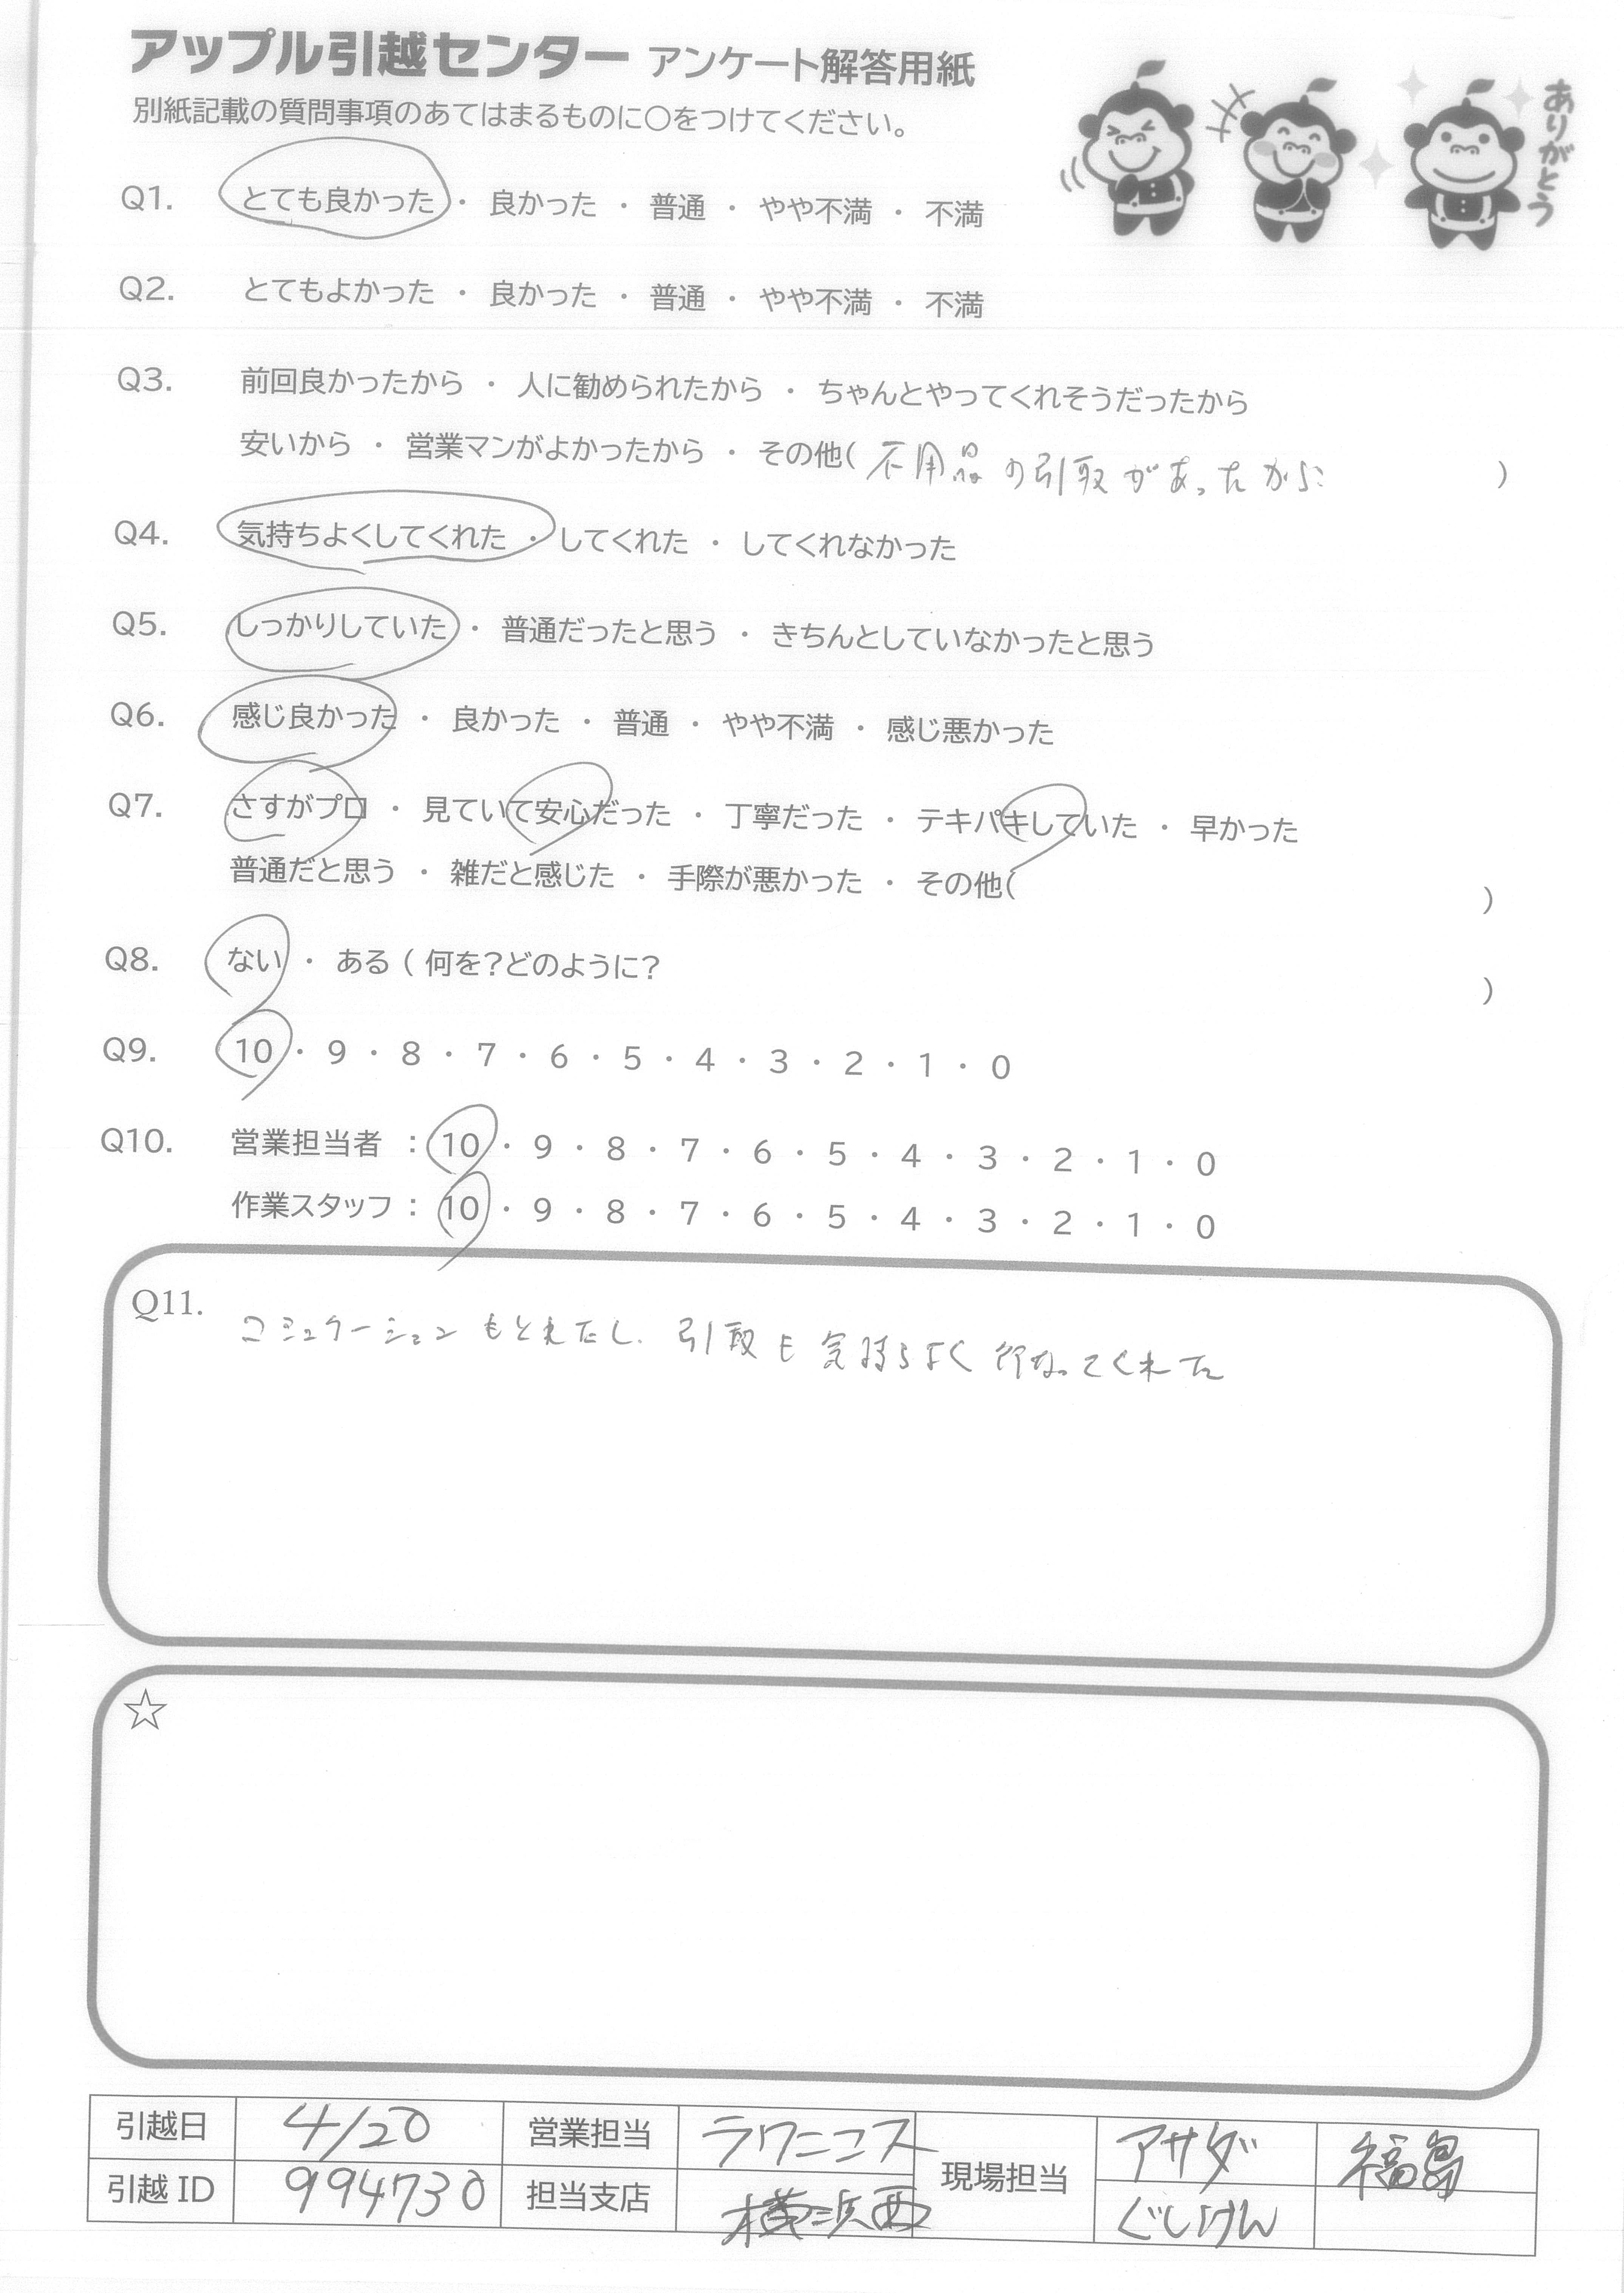 アップル引越センター アンケート解答用紙
別紙記載の質問事項のあてはまるものに〇をつけてください。
ありがとう
Q1. とても良かった ・ 良かった ・ 普通 ・ やや不満 ・ 不満
Q2. とてもよかった ・ 良かった ・ 普通 ・ やや不満 ・ 不満
Q3. 前回良かったから ・ 人に勧められたから ・ ちゃんとやってくれそうだったから
安いから ・ 営業マンがよかったから ・ その他( 不用品の引取があったから )
Q4. 気持ちよくしてくれた ・ してくれた ・ してくれなかった
Q5. しっかりしていた ・ 普通だったと思う ・ きちんとしていなかったと思う
Q6. 感じ良かった ・ 良かった ・ 普通 ・ やや不満 ・ 感じ悪かった
Q7. さすがプロ ・ 見ていて安心だった ・ 丁寧だった ・ テキパキしていた ・ 早かった
普通だと思う ・ 雑だと感じた ・ 手際が悪かった ・ その他( )
Q8. ない ・ ある ( 何を?どのように? )
Q9. 10 ・ 9 ・ 8 ・ 7 ・ 6 ・ 5 ・ 4 ・ 3 ・ 2 ・ 1 ・ 0
Q10. 営業担当者 : 10 ・ 9 ・ 8 ・ 7 ・ 6 ・ 5 ・ 4 ・ 3 ・ 2 ・ 1 ・ 0
作業スタッフ : 10 ・ 9 ・ 8 ・ 7 ・ 6 ・ 5 ・ 4 ・ 3 ・ 2 ・ 1 ・ 0
Q11. コミュケーションもとれたし、引取も気持ちよく行なってくれた
☆
引越日 4/20 営業担当 現場担当 アサダ 福島
引越 ID 994730 担当支店 横浜西 ぐしけん